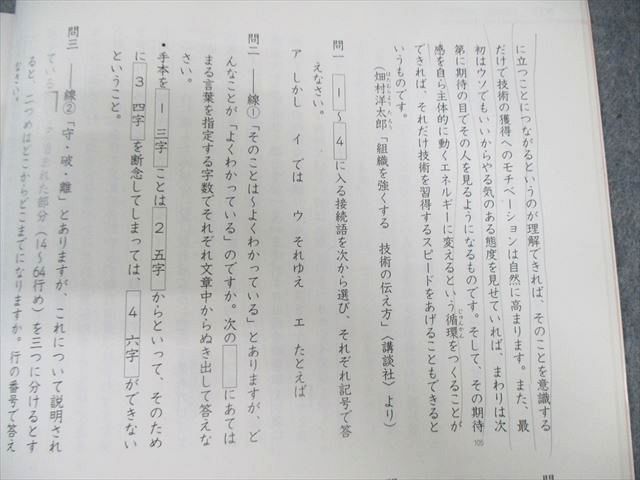 に立つことにつながるというのが理解できれば、そのことを意識する
だけで技術の獲得へのモチベーションは自然に高まります。また、最
初はウソでもいいからやる気のある態度を見せていれば、まわりは次
第に期待の目でその人を見るようになるものです。そして、その期待
105
感を自ら主体的に動くエネルギーに変えるという循環をつくることが
じゅんかん
できれば、それだけ技術を習得するスピードをあげることもできると
いうものです。
(畑村洋太郎「組織を強くする 技術の伝え方」(講談社)より)
はたむらようたろう
問一 1〜4に入る接続語を次から選び、それぞれ記号で答
えなさい。
ア しかし イ では ウ それゆえ エ たとえば
問二 ――線①「そのことは〜よくわかっている」とありますが、ど
んなことが「よくわかっている」のですか。次の にあては
まる言葉を指定する字数でそれぞれ文章中からぬき出して答えな
さい。
・手本を 1 三字 ことは 2 五字 からといって、そのため
に 3 四字 を断念してしまっては、 4 六字 ができない
ということ。
問三 ――線②「守・破・離」とありますが、これについて説明され
ている
まれた部分(14〜64行め)を三つに分けるとす
ると、二つめはどこからどこまでになりますか。行の番号で答え
なさい。
問